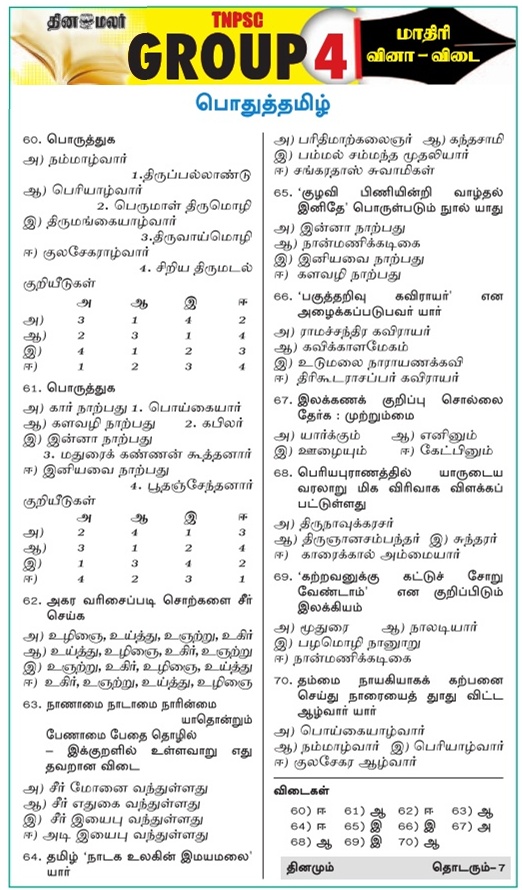 தினமலர்
TNPSC
GROUP 4
மாதிரி
வினா - விடை
பொதுத்தமிழ்
60. பொருத்துக
அ) நம்மாழ்வார்
1.திருப்பல்லாண்டு
ஆ) பெரியாழ்வார்
2. பெருமாள் திருமொழி
இ) திருமங்கையாழ்வார்
3.திருவாய்மொழி
ஈ) குலசேகராழ்வார்
4. சிறிய திருமடல்
குறியீடுகள்
அ ஆ இ ஈ
அ) 3 1 4 2
ஆ) 2 3 1 4
இ) 4 1 2 3
ஈ) 1 2 3 4
61. பொருத்துக
அ) கார் நாற்பது 1. பொய்கையார்
ஆ) களவழி நாற்பது 2. கபிலர்
இ) இன்னா நாற்பது
3. மதுரைக் கண்ணன் கூத்தனார்
ஈ) இனியவை நாற்பது
4. பூதஞ்சேந்தனார்
குறியீடுகள்
அ ஆ இ ஈ
அ) 2 4 1 3
ஆ) 3 1 2 4
இ) 1 3 4 2
ஈ) 4 2 3 1
62. அகர வரிசைப்படி சொற்களை சீர்
செய்க
அ) உழிஞை, உய்த்து, உஞற்று, உகிர்
ஆ) உய்த்து, உழிஞை, உகிர், உஞற்று
இ) உஞற்று, உகிர், உழிஞை, உய்த்து
ஈ) உகிர், உஞற்று, உய்த்து, உழிஞை
63. நாணாமை நாடாமை நாரின்மை
யாதொன்றும்
பேணாமை பேதை தொழில்
– இக்குறளில் உள்ளவாறு எது
தவறான விடை
அ) சீர் மோனை வந்துள்ளது
ஆ) சீர் எதுகை வந்துள்ளது
இ) சீர் இயைபு வந்துள்ளது
ஈ) அடி இயைபு வந்துள்ளது
64. தமிழ் 'நாடக உலகின் இமயமலை'
யார்
அ) பரிதிமாற்கலைஞர் ஆ) கந்தசாமி
இ) பம்மல் சம்மந்த முதலியார்
ஈ) சங்கரதாஸ் சுவாமிகள்
65. 'குழவி பிணியின்றி வாழ்தல்
இனிதே' பொருள்படும் நூல் யாது
அ) இன்னா நாற்பது
ஆ) நான்மணிக்கடிகை
இ) இனியவை நாற்பது
ஈ) களவழி நாற்பது
66. 'பகுத்தறிவு கவிராயர்' என
அழைக்கப்படுபவர் யார்
அ) ராமச்சந்திர கவிராயர்
ஆ) கவிக்காளமேகம்
இ) உடுமலை நாராயணக்கவி
ஈ) திரிகூடராசப்பர் கவிராயர்
67. இலக்கணக் குறிப்பு சொல்லை
தேர்க : முற்றும்மை
அ) யார்க்கும் ஆ) எனினும்
இ) ஊழையும் ஈ) கேட்பினும்
68. பெரியபுராணத்தில் யாருடைய
வரலாறு மிக விரிவாக விளக்கப்
பட்டுள்ளது
அ) திருநாவுக்கரசர்
ஆ) திருஞானசம்பந்தர் இ) சுந்தரர்
ஈ) காரைக்கால் அம்மையார்
69. 'கற்றவனுக்கு கட்டுச் சோறு
வேண்டாம்' என குறிப்பிடும்
இலக்கியம்
அ) மூதுரை ஆ) நாலடியார்
இ) பழமொழி நானூறு
ஈ) நான்மணிக்கடிகை
70. தம்மை நாயகியாகக் கற்பனை
செய்து நாரையைத் தூது விட்ட
ஆழ்வார் யார்
அ) பொய்கையாழ்வார்
ஆ) நம்மாழ்வார் இ) பெரியாழ்வார்
ஈ) குலசேகர ஆழ்வார்
விடைகள்
60) ஈ 61) ஆ 62) ஈ 63) ஆ
64) ஈ 65) இ 66) இ 67) அ
68) ஆ 69) இ 70) ஆ
தினமும் தொடரும்–7